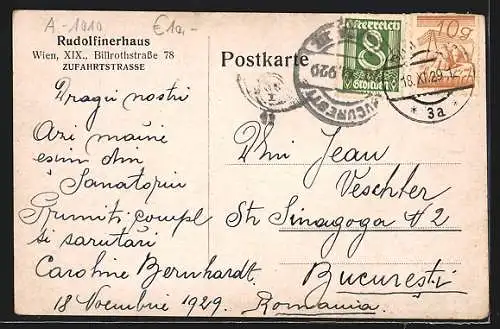 A-1010 €10,-
Rudolfinerhaus
Wien, XIX., Billrothstraße 78
ZUFAHRTSTRASSE
Dragii nostri
Azi maine
esim din
Sanatoriu
Primiti compl
si sarutari
Caroline Bernhardt.
18 Noembrie 1929.
Postkarte
Oesterreich
8
Groschen
10g
18.XI.29
* 3a *
BUCURESTI
929
Dlui Jean
Veschter
Str Sinagoga №2
Bucureşti
Romania.